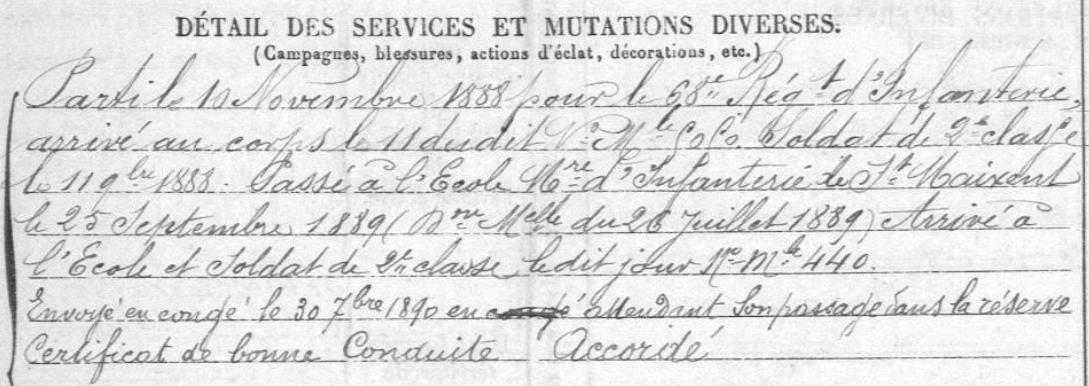 DÉTAIL DES SERVICES ET MUTATIONS DIVERSES.
(Campagnes, blessures, actions d'éclat, décorations, etc.)
Parti le 10 Novembre 1888 pour le 68e Régt d'Infanterie,
arrivé au corps le 11 dudit No Mle Soldat de 2e classe
le 11 9bre 1888. Passé à l'Ecole Mre d'Infanterie de St Maixent
le 25 Septembre 1889 ( Melle du 26 Juillet 1889) Arrivé à
l'Ecole et Soldat de 2e classe ledit jour No Mle 440.
Envoyé en congé le 30 7bre 1890 en congé attendant son passage dans la réserve
Certificat de bonne Conduite Accordé